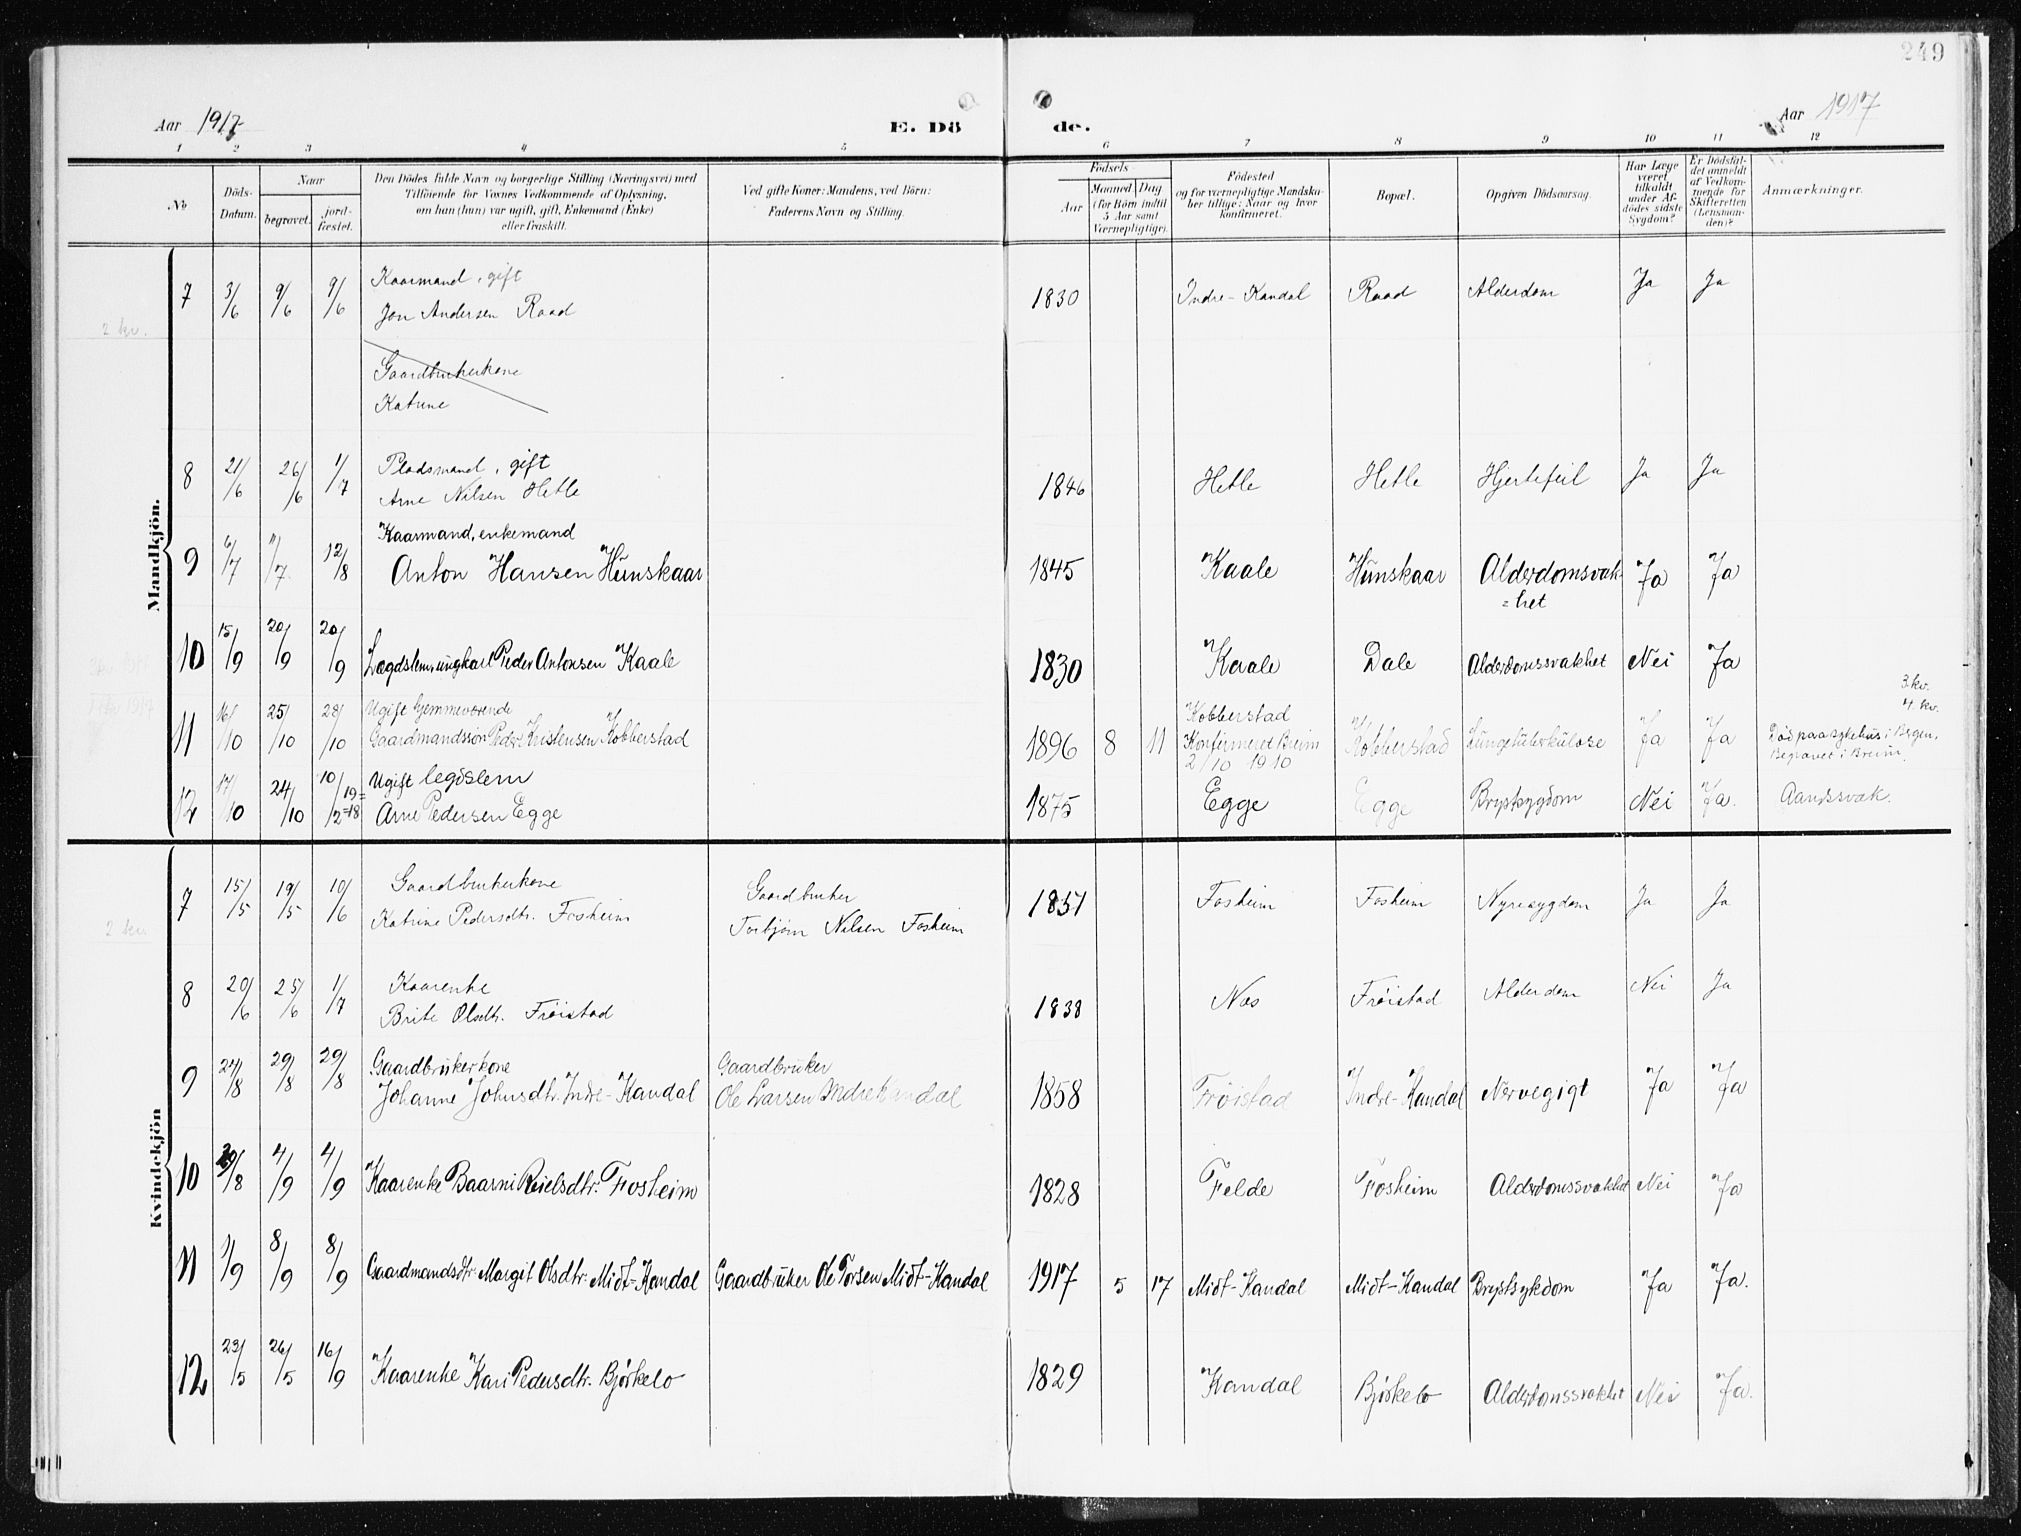 249
Aar 1917
E. Dö
de.
Aar 1917
1 2 3 4 5 6 7 8 9 10 11 12
No
Döds-Datum.
Naar
begravet.
jord-fæstet.
Den Dödes fulde Navn og borgerlige Stilling (Næringsvei) med
Tilföiende for Voxnes Vedkommende af Oplysning,
om han (hun) var ugift, gift, Enkemand (Enke)
eller fraskilt.
Ved gifte Koner: Mandens, ved Börn:
Faderens Navn og Stilling.
Födsels-
Aar
Maaned Dag
(for Börn indtil
5 Aar samt
Værnepligtige).
Födested
og for værnepligtige Mandska-
ber tillige: Naar og hvor
Konfirmeret.
Bopæl.
Opgiven Dödsaarsag.
Har Læge
været
tilkaldt
under Af-
dödes sidste
Sygdom?
Er Dödsfal-
det anmeldt
af Vedkom-
mende for
Skifteretten
(Lensman-
den)?
Anmærkninger.
Mandkjön.
2 kv.
7 3/6 9/6 9/6 Kaarmand, gift
Jon Andersen Raad 1830 Indre-Kandal Raad Alderdom Ja Ja
Gaardbrukerkone
Katrine
8 21/6 26/6 1/7 Pladsmand, gift
Arne Nilsen Hetle 1846 Hetle Hetle Hjertefeil Ja Ja
9 6/7 11/7 12/8 Kaarmand, enkemand
Anton Hansen Hunskaar 1845 Kaale Hunskaar Alderdomsvak=het Ja Ja
10 15/9 20/9 20/9 Lægdslem, ungkarl Peder Antonsen Kaale 1830 Kaale Dale Alderdomssvakhet Nei Ja
3. kv.
4. kv.
11 16/10 25/10 28/10 Ugift hjemmeværende
Gaardmandssøn Peder Kristensen Kobberstad 1896 8 11 Kobberstad
Konfirmeret Breim
2/10 1910 Kobberstad Lungetuberkulose Ja Ja Död paa sykehus i Bergen.
Begravet i Breim.
12 17/10 24/10 10/2 19=18 Ugift legdslem
Arne Pedersen Egge 1875 Egge Egge Brystsygdom Nei Ja. Aandssvak.
Kvindekjön
2 kv.
7 15/5 19/5 10/6 Gaardbrukerkone
Katrine Pedersdtr. Fosheim Gaardbruker
Torbjörn Nilsen Fosheim 1851 Fosheim Fosheim Nyresygdom Ja Ja
8 20/6 25/6 1/7 Kaarenke
Brite Olsdtr. Fröistad 1838 Nes Fröistad Alderdom Nei Ja
9 24/8 29/8 29/8 Gaardbrukerkone
Johanne Johnsdtr. Indre-Kandal Gaardbruker
Ole Larsen Indre Kandal 1858 Frøistad Indre-Kandal Nervegigt Ja Ja
10 /8 4/9 4/9 Kaarenke Baarni Reielsdtr. Fosheim 1828 Felde Fosheim Alderdomssvakhet Nei Ja
11 1/9 8/9 8/9 Gaardmandsdtr. Margit Olsdtr. Midt-Kandal Gaardbruker Ole Torsen Midt-Kandal 1917 5 17 Midt-Kandal Midt-Kandal Brystsykdom Ja Ja.
12 23/5 26/5 16/9 Kaarenke Kari Pedersdtr. Bjørkelo 1829 Kandal Bjørkelo Alderdomssvakhet Nei Ja.